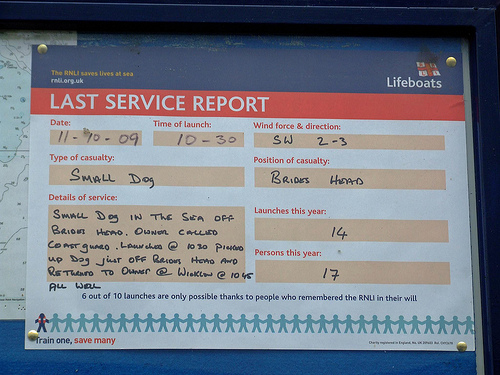 The RNLI saves lives at sea
rnli.org.uk
Lifeboats
LAST SERVICE REPORT
Date:
Time of launch:
Wind force & direction:
11-10-09
10-30
SW 2-3
Type of casualty:
Position of casualty:
SMALL DOG
BRIDES HEAD
Details of service:
Launches this year:
14
Persons this year:
17
SMALL DOG IN THE SEA OFF
BRIDES HEAD. OWNER CALLED
COASTGUARD. LAUNCHED @ 1030 PICKED
UP DOG JUST OFF BRIDES HEAD AND
RETURNED TO OWNER @ WICKLOW @ 1045
ALL WELL
6 out of 10 launches are only possible thanks to people who remembered the RNLI in their will
Train one, save many